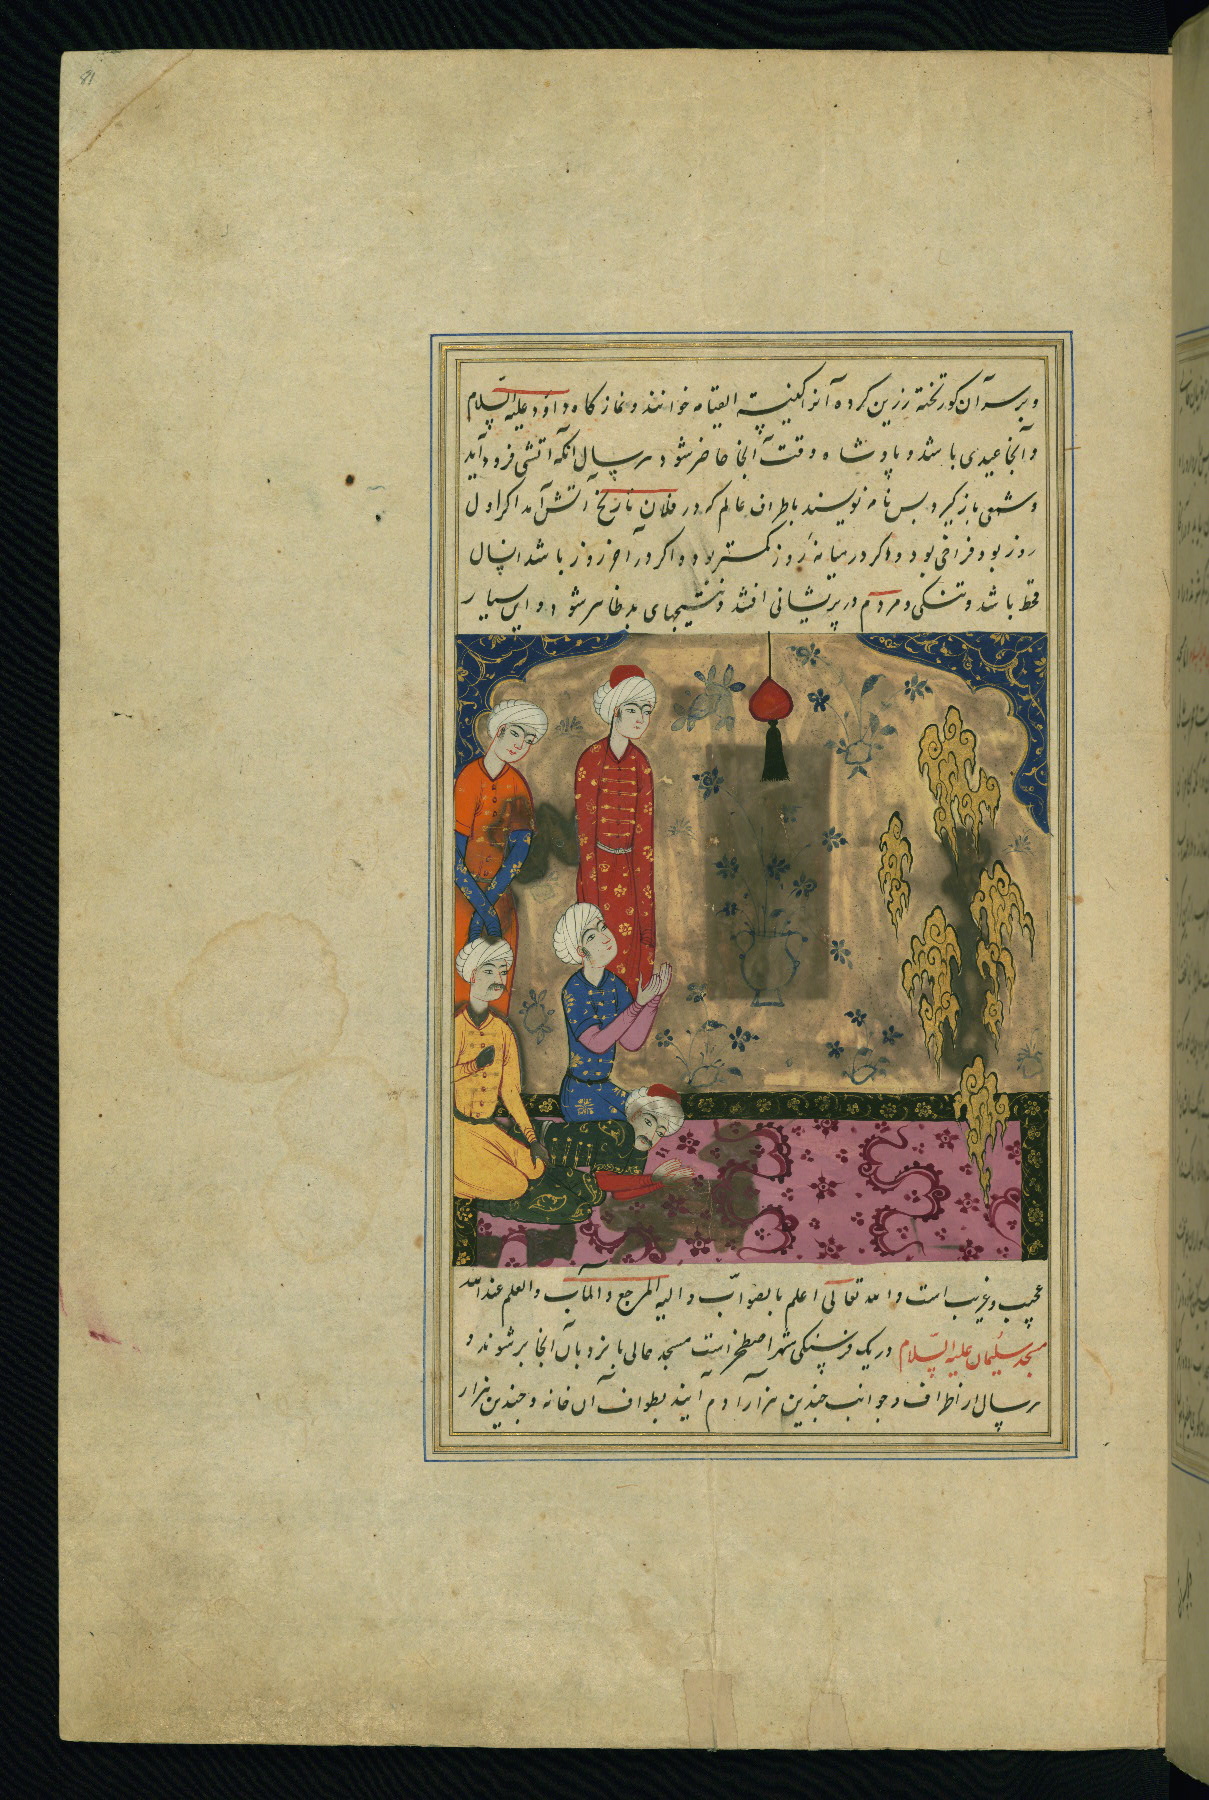 81
و بر سر آن کور تخته زرین کرده آنرا کنیسة القیامه خوانند و نماز کاه داود علیه السلام
و آنجا عیدی باشد و پادشاه وقت آنجا حاضر شود هر سال آنکه آتشی فرود آید
و شمعی باز کیرد بس نامه نویسند باطراف عالم که در فلان تاریخ آتش آمد اکر اول
روز بود فراخی بود و اکر در میانه روز کمتر بود و اکر در آخر روز باشد انسال
قحط باشد و تنکی و مردم در پریشانی افتند و نتیجهای بد ظاهر شود و این بسیار
عجیب و غریب است و الله تعالی اعلم بالصواب و الیه المرجع و المآب و العلم عند الله
مسجد سلیمان علیه السلام در یک فرسنکی شهر اصطخر است مسجد عالی با نردبان آنجا بر شوند و
هر سال از اطراف و جوانب چندین هزار آدم آیند بطواف آن خانه و چندین هزار